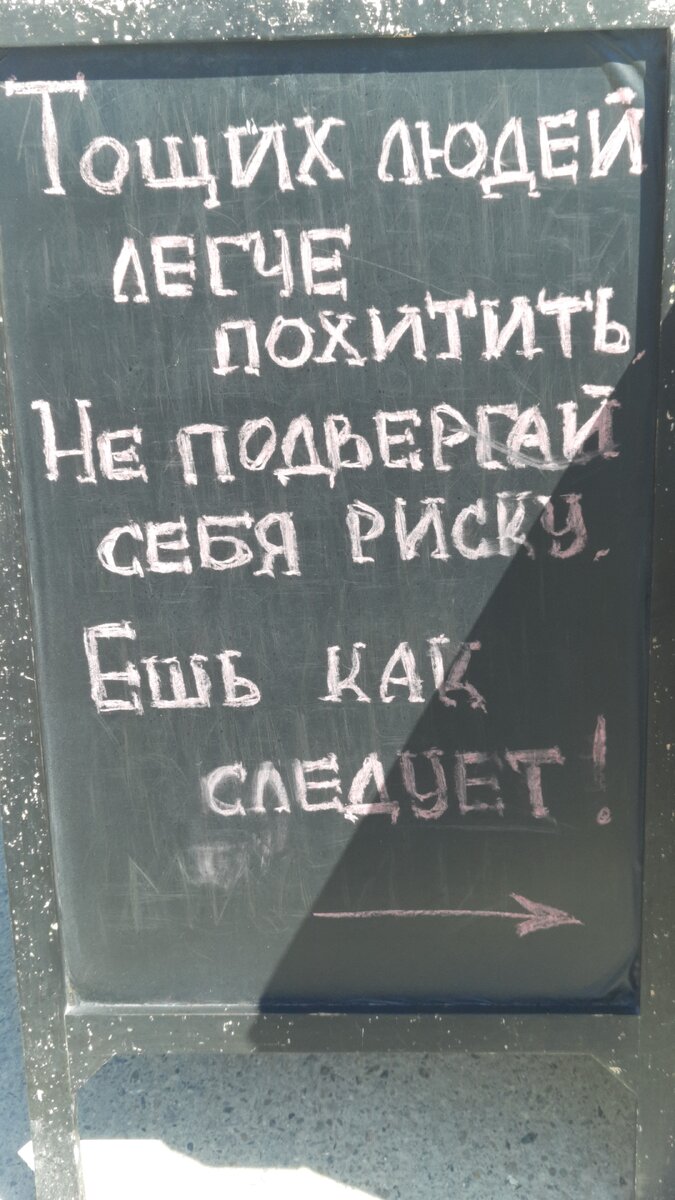 Тощих людей
легче
похитить
Не подвергай
себя риску.
Ешь как
следует!